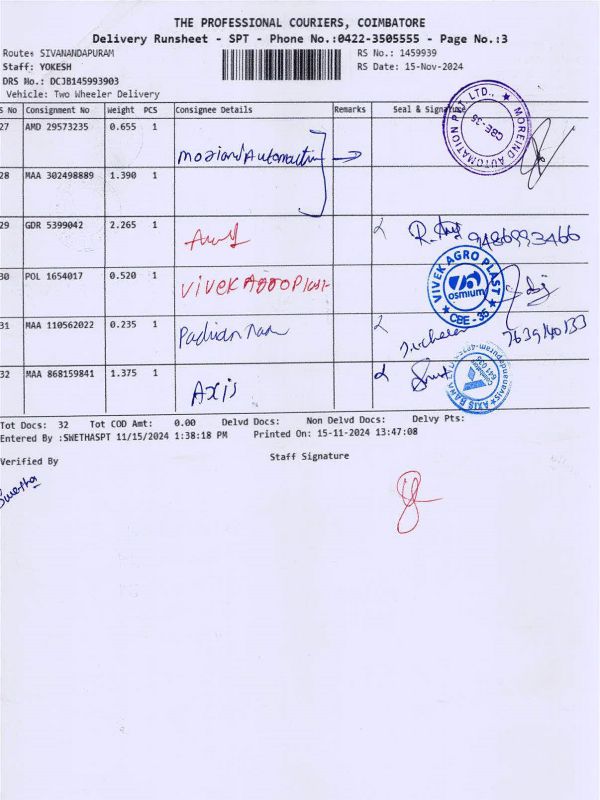 THE PROFESSIONAL COURIERS, COIMBATORE
Delivery Runsheet - SPT - Phone No.:0422-3505555 - Page No.:3
Route: SIVANANDAPURAM RS No.: 1459939
Staff: YOKESH RS Date: 15-Nov-2024
DRS No.: DCJB145993903
Vehicle: Two Wheeler Delivery
S No Consignment No Weight PCS Consignee Details Remarks Seal & Signature
27 AMD 29573235 0.655 1
MOREIND AUTOMATION PVT. LTD., ★ CBE-35
28 MAA 302498889 1.390 1
29 GDR 5399042 2.265 1 9486993466
30 POL 1654017 0.520 1 VIVEK AGRO Plast
VIVEK AGRO PLAST ★ CBE - 35 ★ osmium
31 MAA 110562022 0.235 1 7639140133
32 MAA 868159841 1.375 1 Axis
AXIS BANK
Tot Docs: 32 Tot COD Amt: 0.00 Delvd Docs: Non Delvd Docs: Delvy Pts:
Entered By :SWETHASPT 11/15/2024 1:38:18 PM Printed On: 15-11-2024 13:47:08
Verified By Staff Signature
Swetha